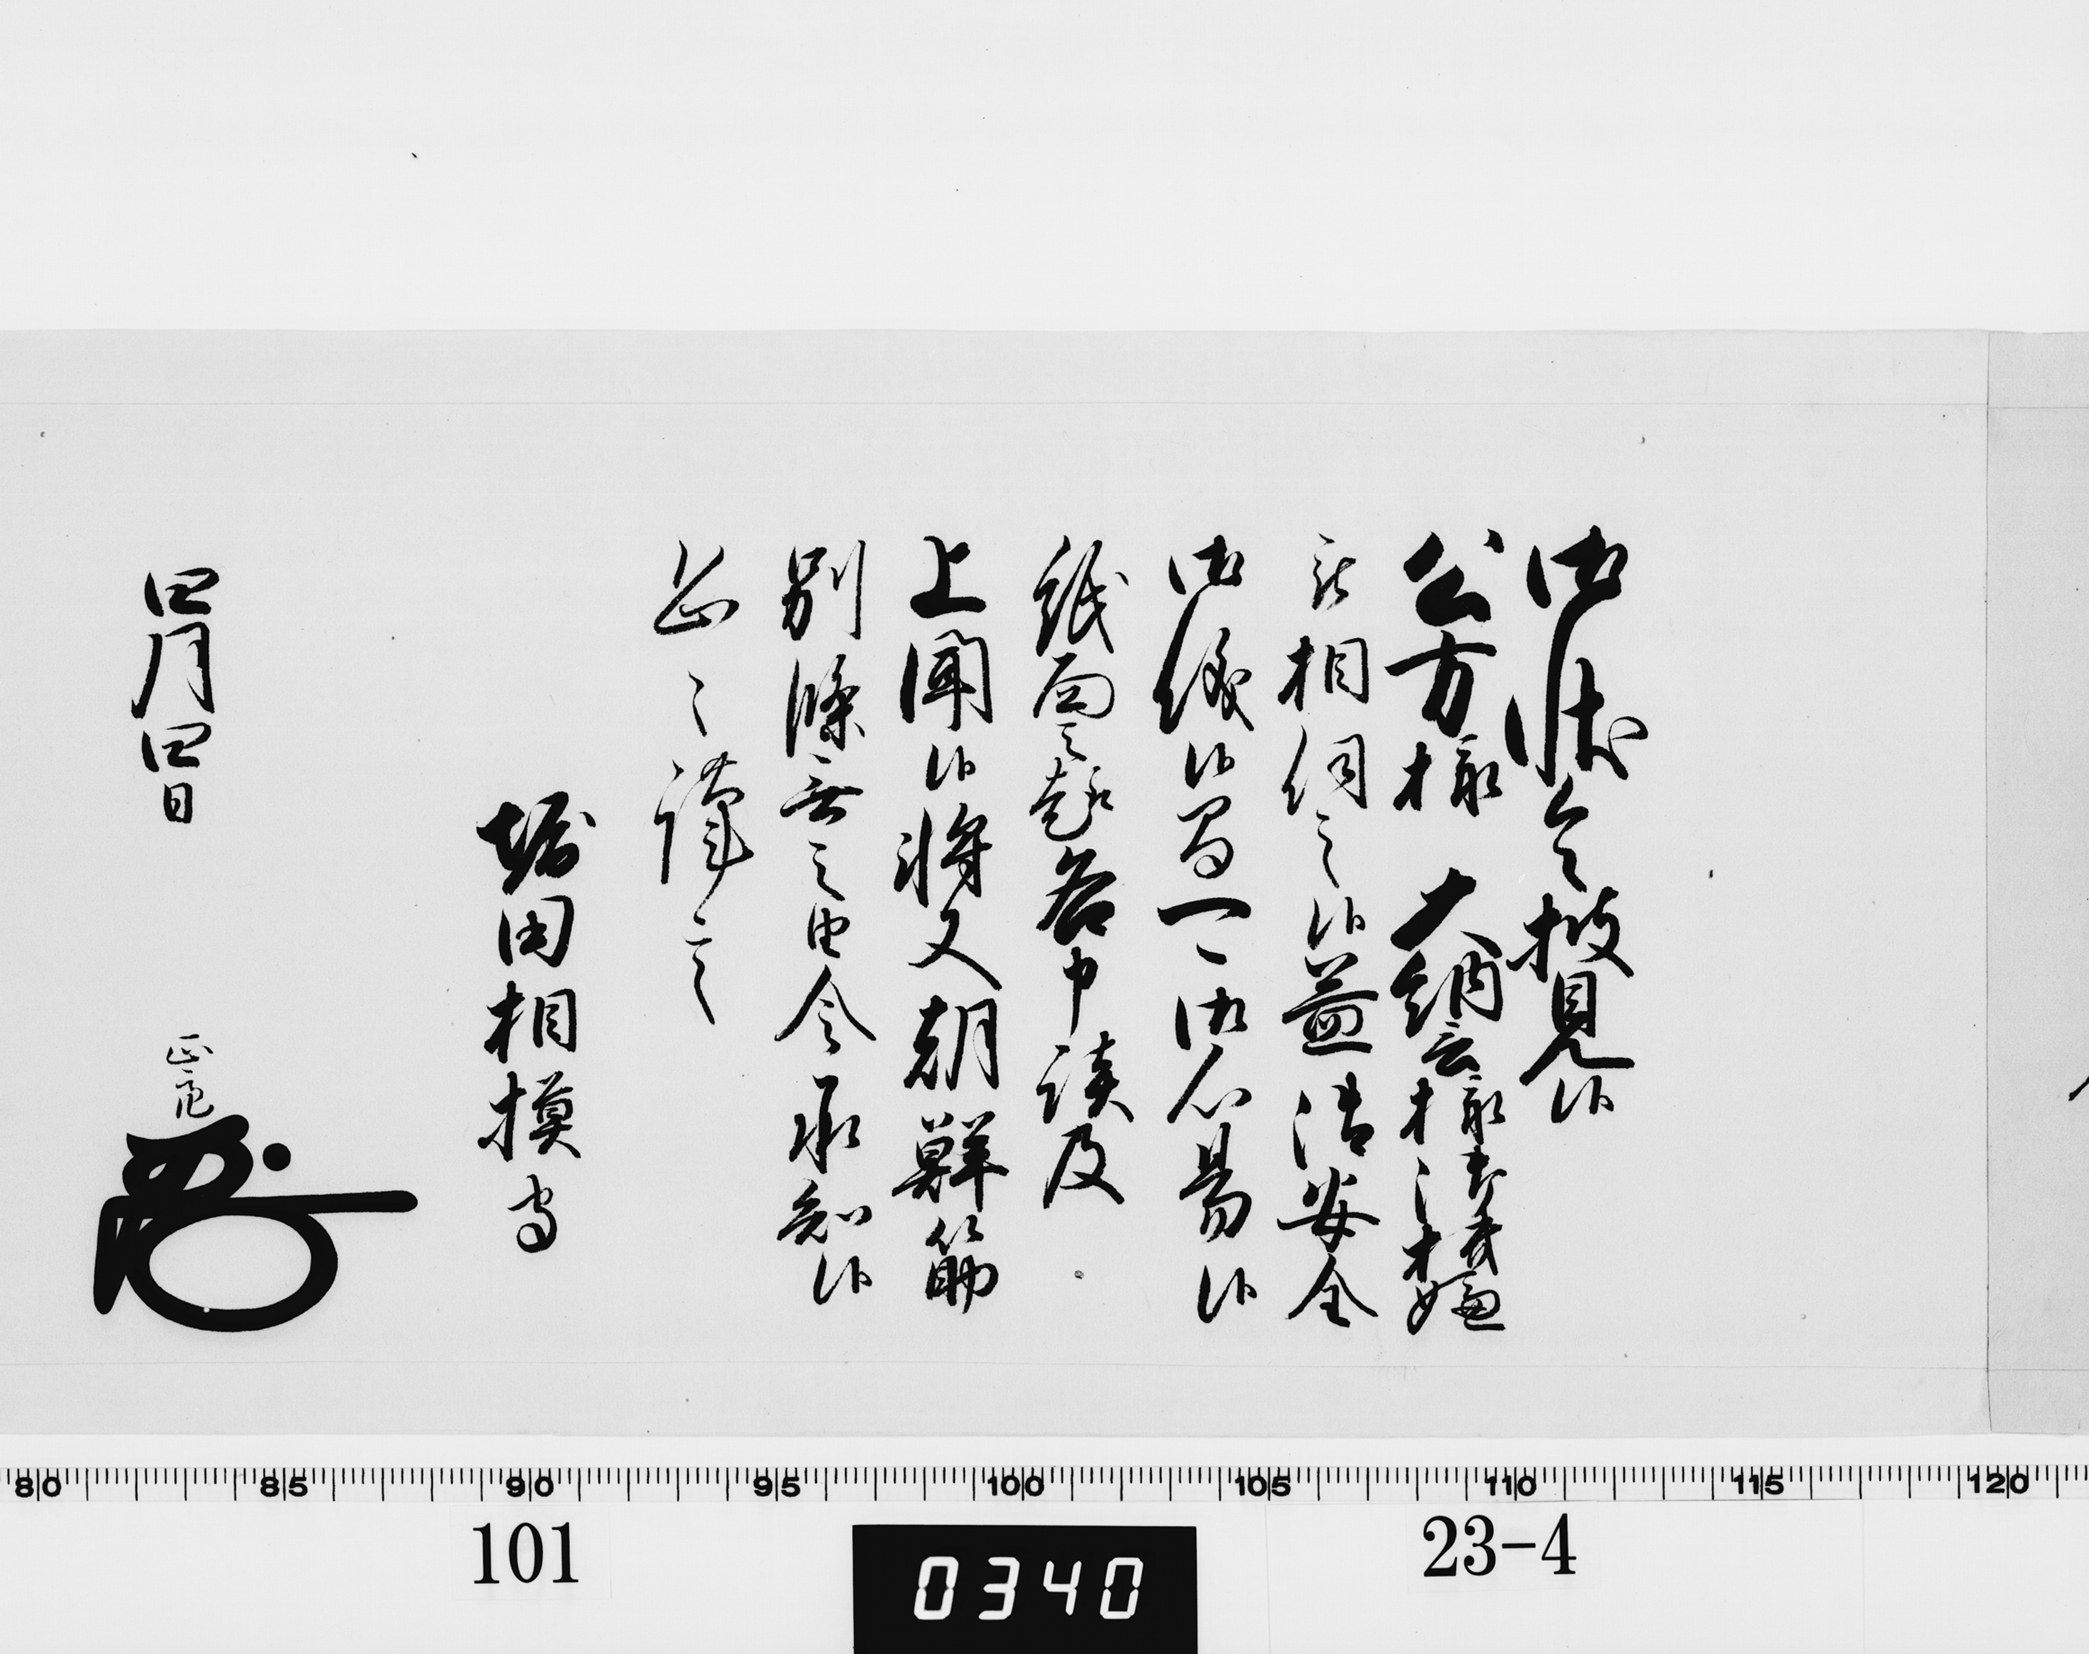 御状令披見候
公方様 大納言様御機嫌
被相伺之候益御安全
御儀候間可御心易候
紙面之趣各申談及
上聞候将又朝鮮筋
別條無之由令承知候
恐々謹言
堀田相模守
四月四日
正亮
80 85 90 95 100 105 110 115 120
101
0340
23-4